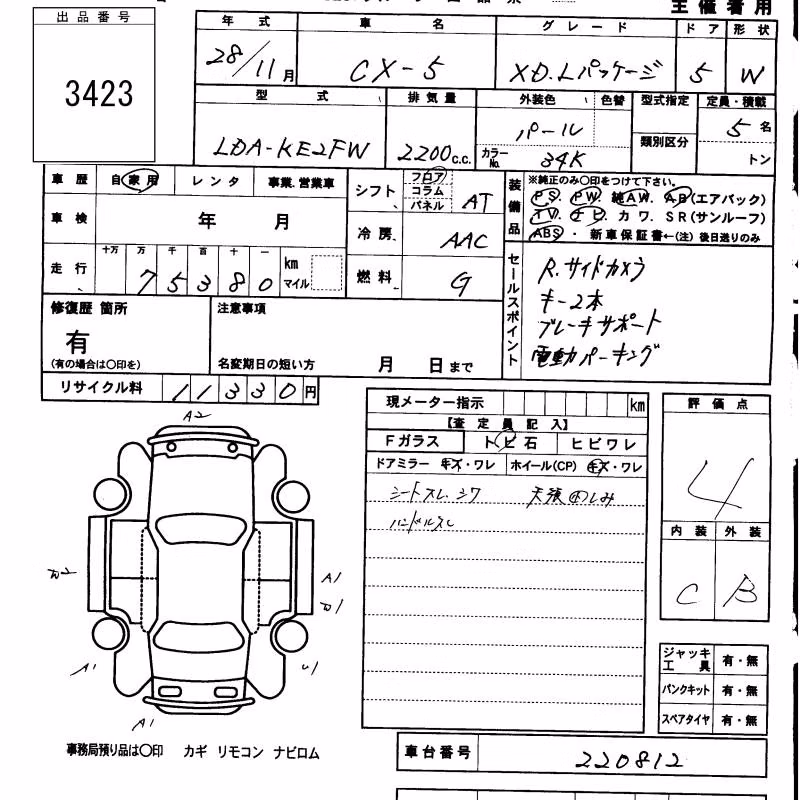 主催者用
出品番号
3423
年式 車名 グレード ドア 形状
28/11月 CX-5 XD.Lパッケージ 5 W
型式 排気量 外装色 色替 型式指定 定員・積載
LDA-KE2FW 2200c.c. パール 類別区分 5名
カラーNo. 34K トン
車歴 自家用 レンタ 事業.営業車
シフト フロア コラム パネル AT
装備品 ※純正のみ〇印をつけて下さい。
PS. PW. 純AW. AB(エアバック)
TV. ナビ. カワ. SR(サンルーフ)
ABS・新車保証書←(注)後日送りのみ
車検 年 月
冷房 AAC
走行 十万 万 千 百 十 一
75380 km マイル
燃料 G
セールスポイント
R.サイドカメラ
キー2本
ブレーキサポート
電動パーキング
修復歴 箇所
有
(有の場合は〇印を)
注意事項
名変期日の短い方 月 日まで
リサイクル料 11330円
現メーター指示 km
【査定員記入】
Fガラス トビ石 ヒビワレ
ドアミラー キズ・ワレ ホイール(CP) キズ・ワレ
シートスレ.シワ 天張
ハンドルスレ
評価点
4
内装 外装
C B
A2
A1
A1
A1
ジャッキ工具 有・無
パンクキット 有・無
スペアタイヤ 有・無
事務局預り品は〇印 カギ リモコン ナビロム
車台番号 220812